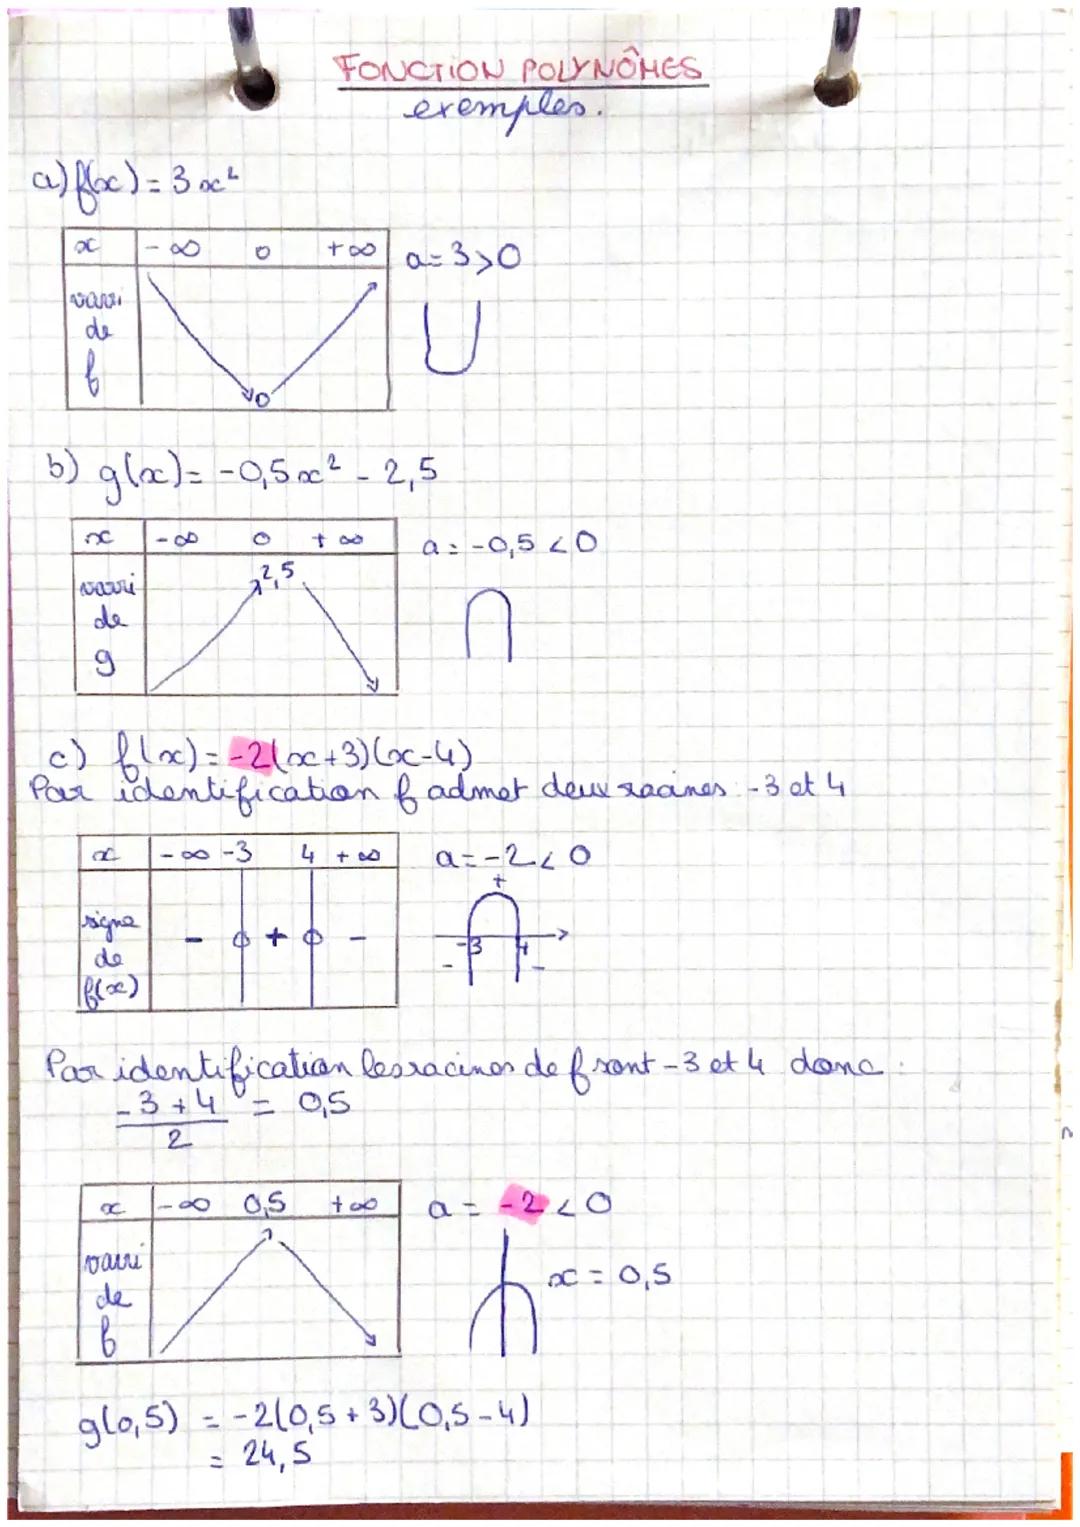 FONCTION POLYNÔMES
exemples.
a) f(x) = 3x²
x -∞ 0 +∞
a = 3 > 0
varri
de
f
0
b) g(x) = -0,5x² - 2,5
x -∞ 0 +∞
a = -0,5 < 0
2,5
varri
de
g
c) f(x) = -2(x+3)(x-4)
Par identification f admet deux racines -3 et 4
x -∞ -3 4 +∞
a = -2 < 0
+
signe
de
f(x)
- 0 + 0 -
-3 4
- -
Par identification les racines de f sont -3 et 4 donc :
-3+4 = 0,5
2
x -∞ 0,5 +∞
a = -2 < 0
varri
de
f
x = 0,5
g(0,5) = -2(0,5+3)(0,5-4)
= 24,5